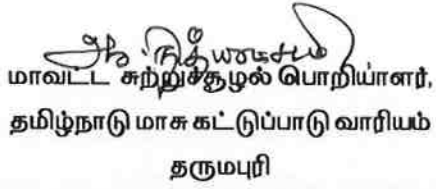 மாவட்ட சுற்றுச்சூழல் பொறியாளர்,
தமிழ்நாடு மாசு கட்டுப்பாடு வாரியம்
தருமபுரி